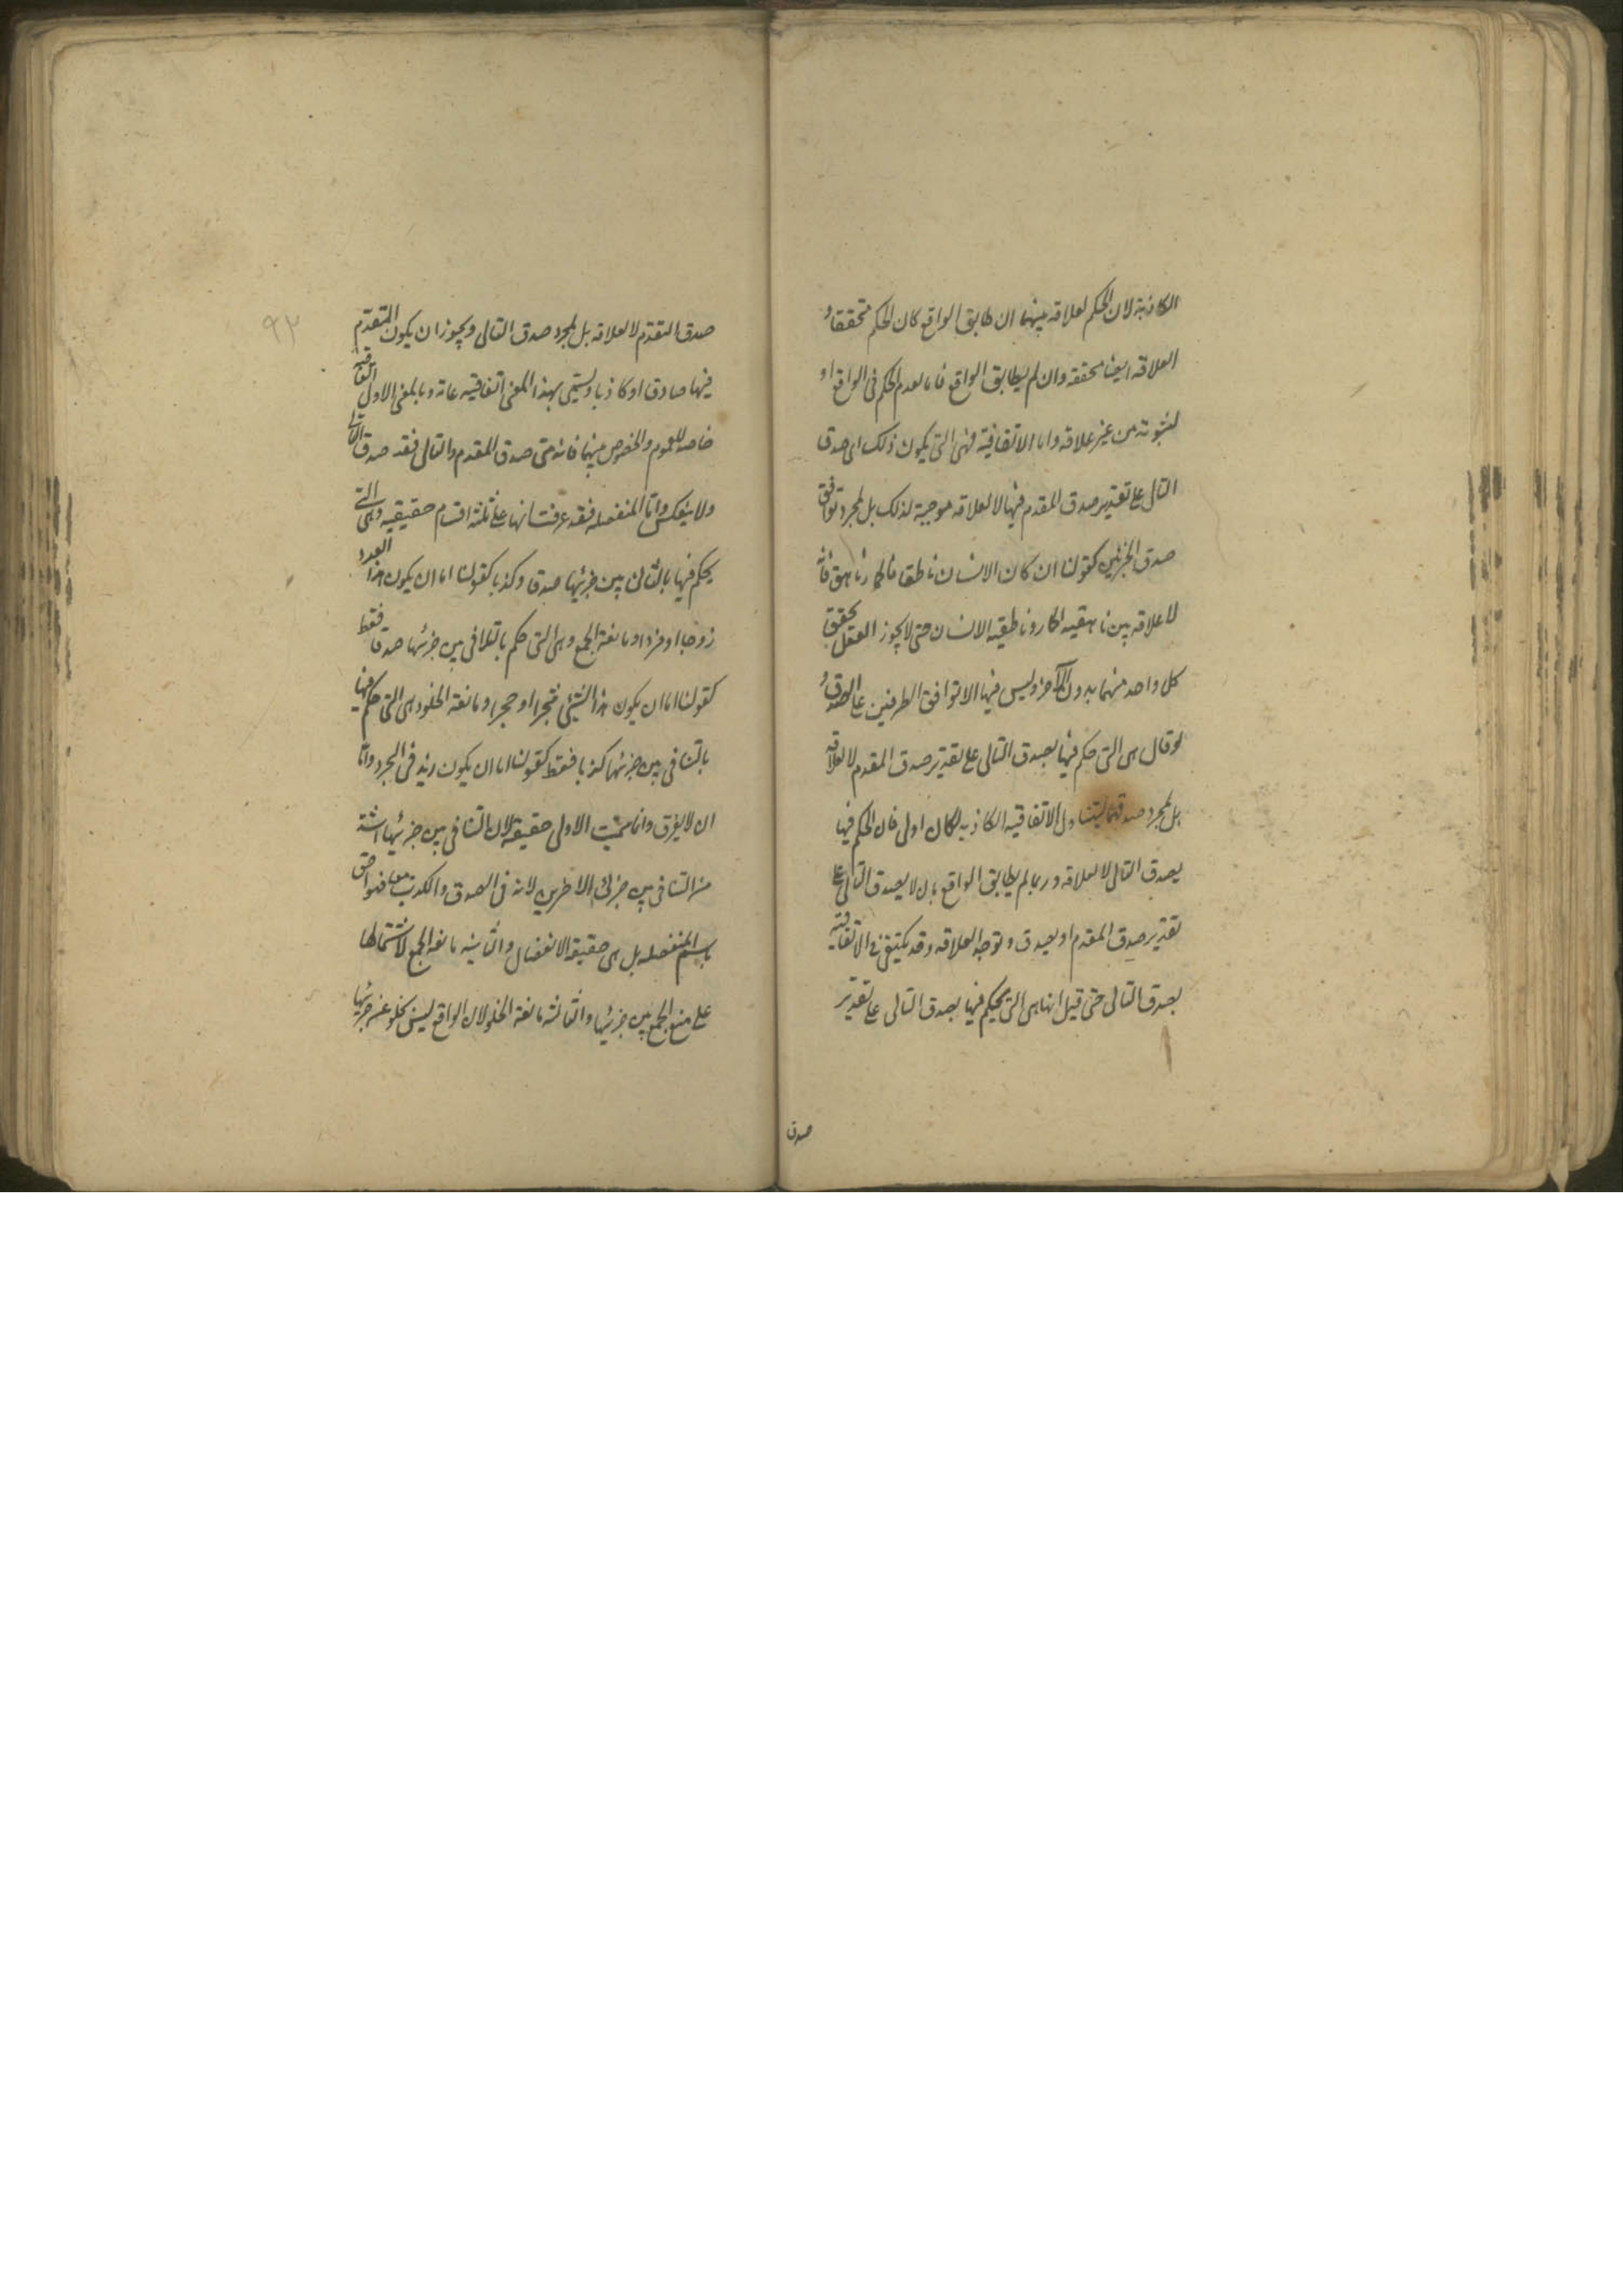 الكاذبة لان الحكم لعلاقه بينهما ان طابق الواقع كان الحكم متحققا و
العلاقه ايضا محققه وان لم يطابق الواقع فاما لعدم الحكم فى الواقع او
لثبوته من غير علاقه واما الاتفاقية فهى التى يكون ذلك اى صدق
التالى على تقدير صدق المقدم فيها لا لعلاقه موجبة لذلك بل لمجرد توافق
صدق الجزئين كقولنا ان كان الانسان ناطقا فالحمار ناهق فانه
لا علاقه بين ناهقيه الحمار وناطقيه الانسان حتى لا يجوز العقل تحقق
كل واحد منهما بدون الآخر وليس فيها الا توافق الطرفين على الصدق و
لو قال هى التى حكم فيها بصدق التالى على تقدير صدق المقدم لا لعلاقه
بل لمجرد صدقهما ليتناول الاتفاقيه الكاذبه لكان اولى فان الحكم فيها
بصدق التالى لا لعلاقه وربما لم يطابق الواقع بان لا يصدق التالى على
تقدير صدق المقدم او يصدق وتوجد العلاقه وقد يكتفى فى الاتفاقية
بصدق التالى حتى قيل انها هى التى يحكم فيها بصدق التالى على تقدير
صدق
٩٢
صدق المقدم لا لعلاقه بل لمجرد صدق التالى ويجوز ان يكون المقدم
فيها صادقا او كاذبا ويسمى بهذا المعنى اتفاقيه عامة وبالمعنى الاول اتفاقيه
خاصه للعموم والخصوص بينهما فانه متى صدق المقدم والتالى فقد صدق التالى
ولا ينعكس واما المنفصله فقد عرفت انها على ثلثه اقسام حقيقيه وهى التى
يحكم فيها بالتنافى بين جزئيها صدقا وكذبا كقولنا اما ان يكون هذا العدد
زوجا او فردا ومانعة الجمع وهى التى حكم بالتنافى بين جزئيها صدقا فقط
كقولنا اما ان يكون هذا الشئ شجرا او حجرا ومانعة الخلو وهى التى حكم فيها
بالتنافى بين جزئيها كذبا فقط كقولنا اما ان يكون زيد فى البحر واما
ان لا يغرق وانما سميت الاولى حقيقة لان التنافى بين جزئيها اشد
من التنافى بين جزئى الاخرين لانه فى الصدق والكذب معا فهو احق
باسم المنفصله بل هى حقيقة الانفصال والثانيه مانعة الجمع لاشتمالها
على منع الجمع بين جزئيها والثالثه مانعة الخلو لان الواقع ليس يخلو عن جزئيها